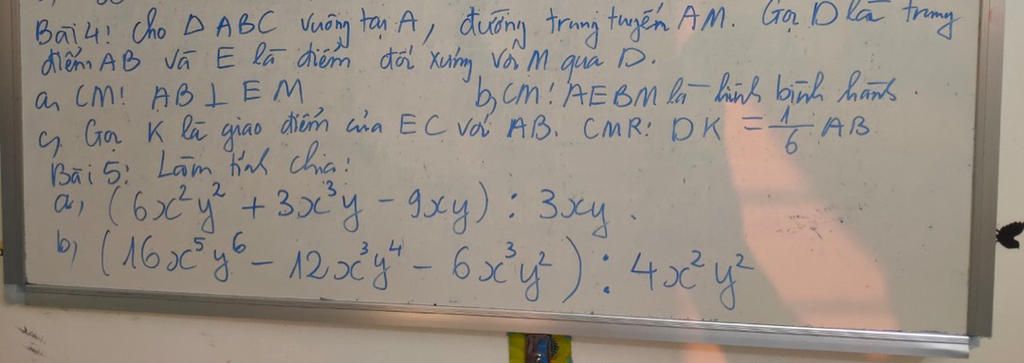 Bài 4: Cho Δ ABC vuông tại A, đường trung tuyến AM. Gọi D là trung
điểm AB và E là điểm đối xứng với M qua D.
a, CM: AB ⊥ EM b, CM: AEBM là hình bình hành.
c, Gọi K là giao điểm của EC với AB. CMR: DK = 1/6 AB
Bài 5: Làm tính chia:
a, (6x²y² + 3x³y - 9xy) : 3xy.
b, (16x⁵y⁶ - 12x³y⁴ - 6x³y²) : 4x²y²